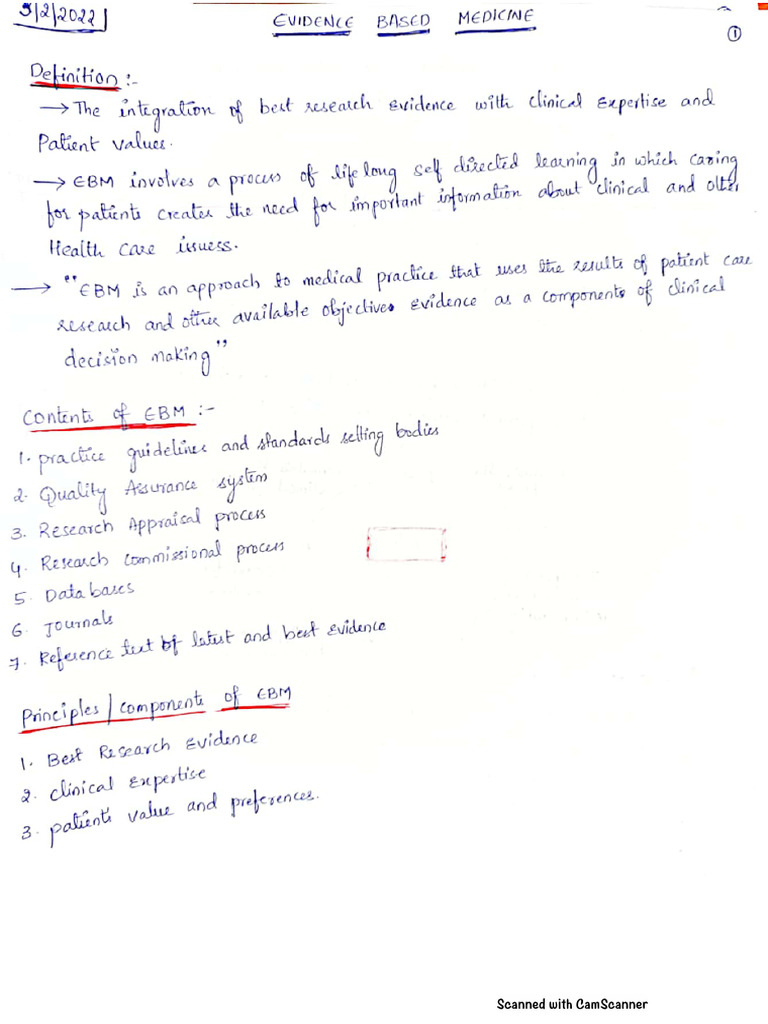 3/2/2022
EVIDENCE BASED MEDICINE
1
Definition :-
→ The integration of best research Evidence with Clinical Expertise and
Patient values.
→ EBM involves a process of life long self directed learning in which caring
for patients creates the need for important information about clinical and other
Health care issuess.
→ "EBM is an approach to medical practice that uses the results of patient care
research and other available objectives evidence as a components of clinical
decision making"
Contents of EBM :-
1. practice guidelines and standards setting bodies
2. Quality Assurance system
3. Research Appraisal process
4. Research Commissional process
5. Data bases
6. Journals
7. Reference text of latest and best Evidence
Principles / components of EBM
1. Best Research Evidence
2. clinical Expertise
3. patients value and preferences.
Scanned with CamScanner